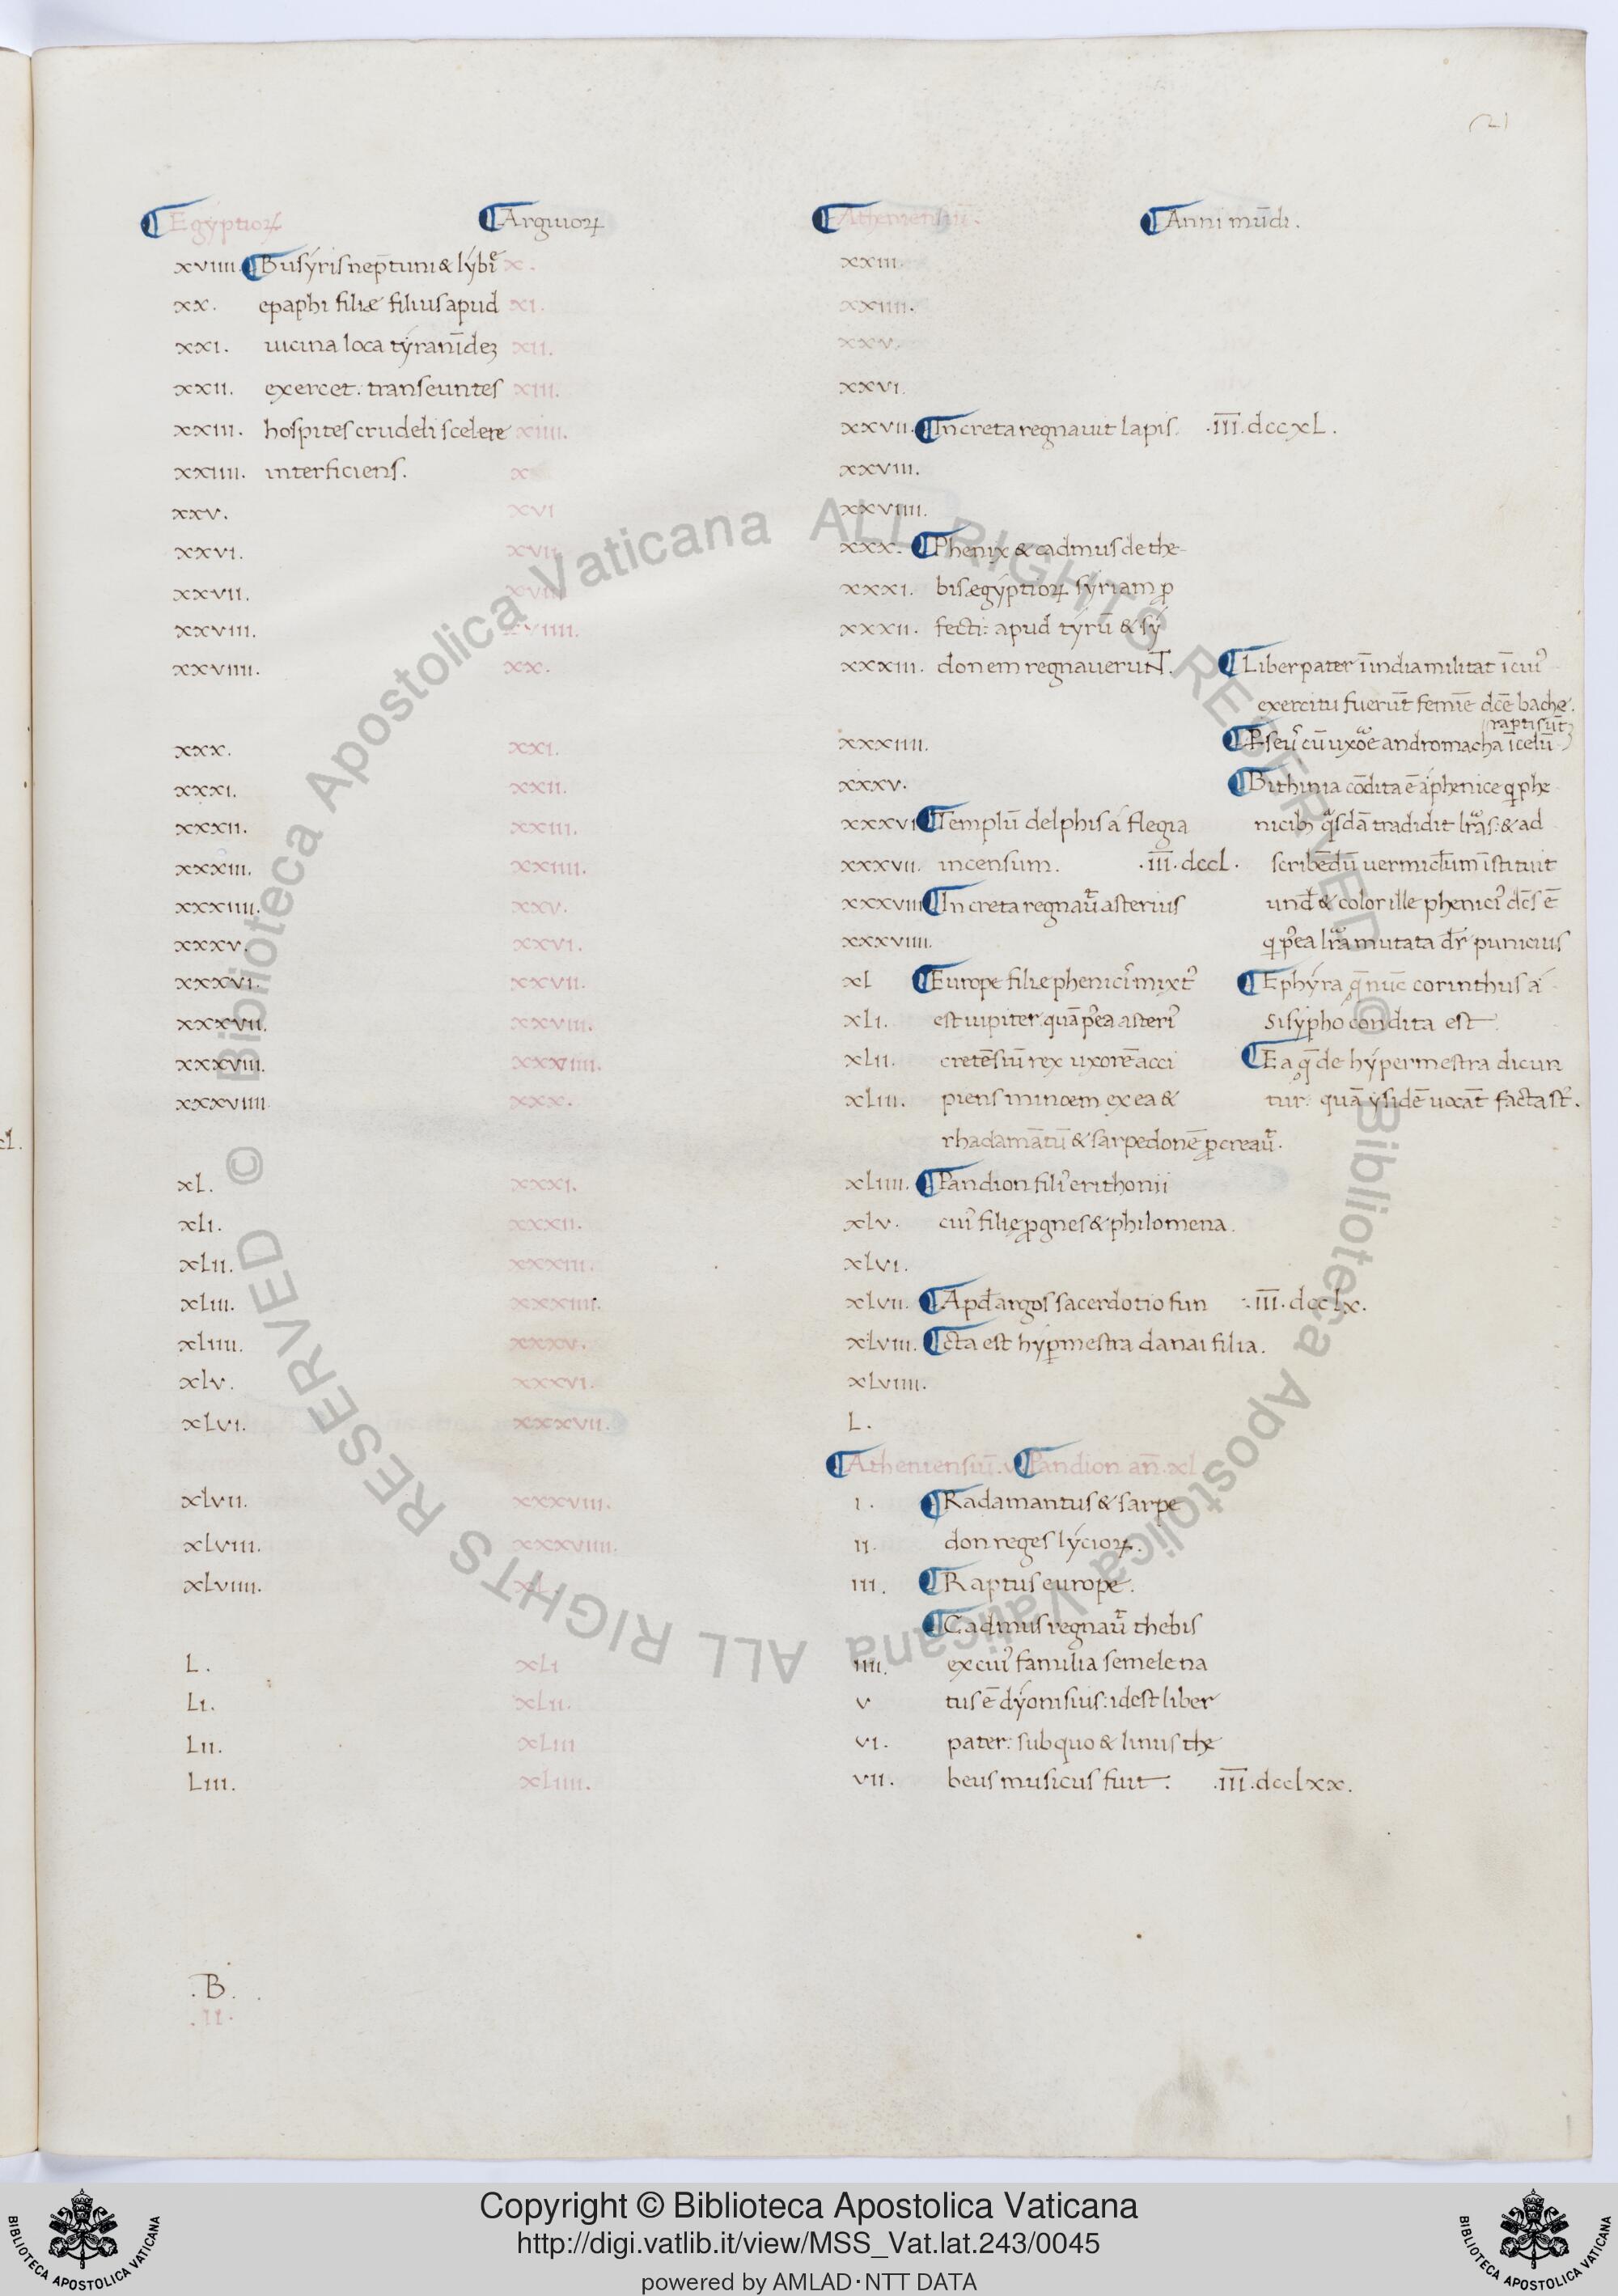 21
¶ Egyptioꝝ ¶ Arguioꝝ ¶ Atheniensiū. ¶ Anni mūdi.
xviiii. ¶ Busyris neptuni & lybi̅e x. xxiii.
xx. epaphi filiæ filius apud xi. xxiiii.
xxi. uicina loca tyranīdeꝫ xii. xxv.
xxii. exercet. transeuntes xiii. xxvi.
xxiii. hospites crudeli scelere xiiii. xxvii. ¶ In creta regnauit lapis. .III. dccxl.
xxiiii. interficiens. x xxviii.
xxv. xvi xxviiii.
xxvi. xvii xxx. ¶ Phenix & cadmus de the-
xxvii. xviii xxxi. bis ægyptioꝝ syriam ꝓ
xxviii. xviiii. xxxii. fecti: apud tyrū & sy
xxviiii. xx. xxxiii. donem regnauerunt. ¶ Liber pater īindia militat ī cui᾽
exercitu fuerūt femīe dc̄e bache.
rapti sūt
xxx. xxi. xxxiiii. ¶ Pseu᾽ cū uxoe andromacha ī celū
xxxi. xxii. xxxv. ¶ Bithinia cōdita ē a phenice q phe
xxxii. xxiii. xxxvi ¶ Templū delphis á flegia nicib; qsdā tradidit lras: & ad
xxxiii. xxiiii. xxxvii. incensum. .III. dccl. scribēdū uermiclum īstituit
xxxiiii. xxv. xxxviii ¶ In creta regnau̅t asterius und & color ille phenici᾽ dc̄s ē
xxxv. xxvi. xxxviiii. q p᾽ea lra mutata dr punicius
xxxvi. xxvii. xl ¶ Europe filie phenici᾽ mixt᾽ ¶ Ephyra q̄ nūc corinthus á
xxxvii. xxviii. xli. est iupiter quā p᾽ea asteri᾽ sisypho condita est
xxxviii. xxxviiii. xlii. cretēsiū rex uxorē acci ¶ Ea q̄ de hypermestra dicun
xxxviiii xxx. xliii. piens minoem ex ea & tur: quā ysidē uocāt facta st᾽.
rhadamātū & sarpedonē ꝓcreau̅t.
xl. xxxi. xliiii. ¶ Pandion fili᾽ erithonii
xli. xxxii. xlv. cui᾽ filie ꝓgnes & philomena.
xlii. xxxiii. xlvi.
xliii. xxxiiii. xlvii. ¶ Apd argos sacerdotio fun .III. dcclx.
xliiii. xxxv. xlviii. ¶ cta est hyꝑmestra danai filia.
xlv. xxxvi. xlviiii.
xlvi. xxxvii. L.
¶ Atheniensiū. v ¶ Pandion an̄. xl
xlvii. xxxviii. i. ¶ Radamantus & sarpe
xlviii. xxxviiii. ii. don reges lycioꝝ.
xlviiii. xl. iii. ¶ Raptus europe.
¶ Cadmus regnau̅t thebis
L. xli iiii. ex cui᾽ familia semele na
Li. xlii. v tus ē dyonisius: idest liber
Lii. xliii vi. pater: sub quo & linus the
Liii. xliiii. vii. beus musicus fuit. .III. dcclxx.
.B.
.II.
cl.
© Biblioteca Apostolica Vaticana ALL RIGHTS RESERVED © Biblioteca Apostolica Vaticana ALL RIGHTS RESERVED
Copyright © Biblioteca Apostolica Vaticana
http://digi.vatlib.it/view/MSS_Vat.lat.243/0045
powered by AMLAD·NTT DATA
BIBLIOTECA APOSTOLICA VATICANA
BIBLIOTECA APOSTOLICA VATICANA